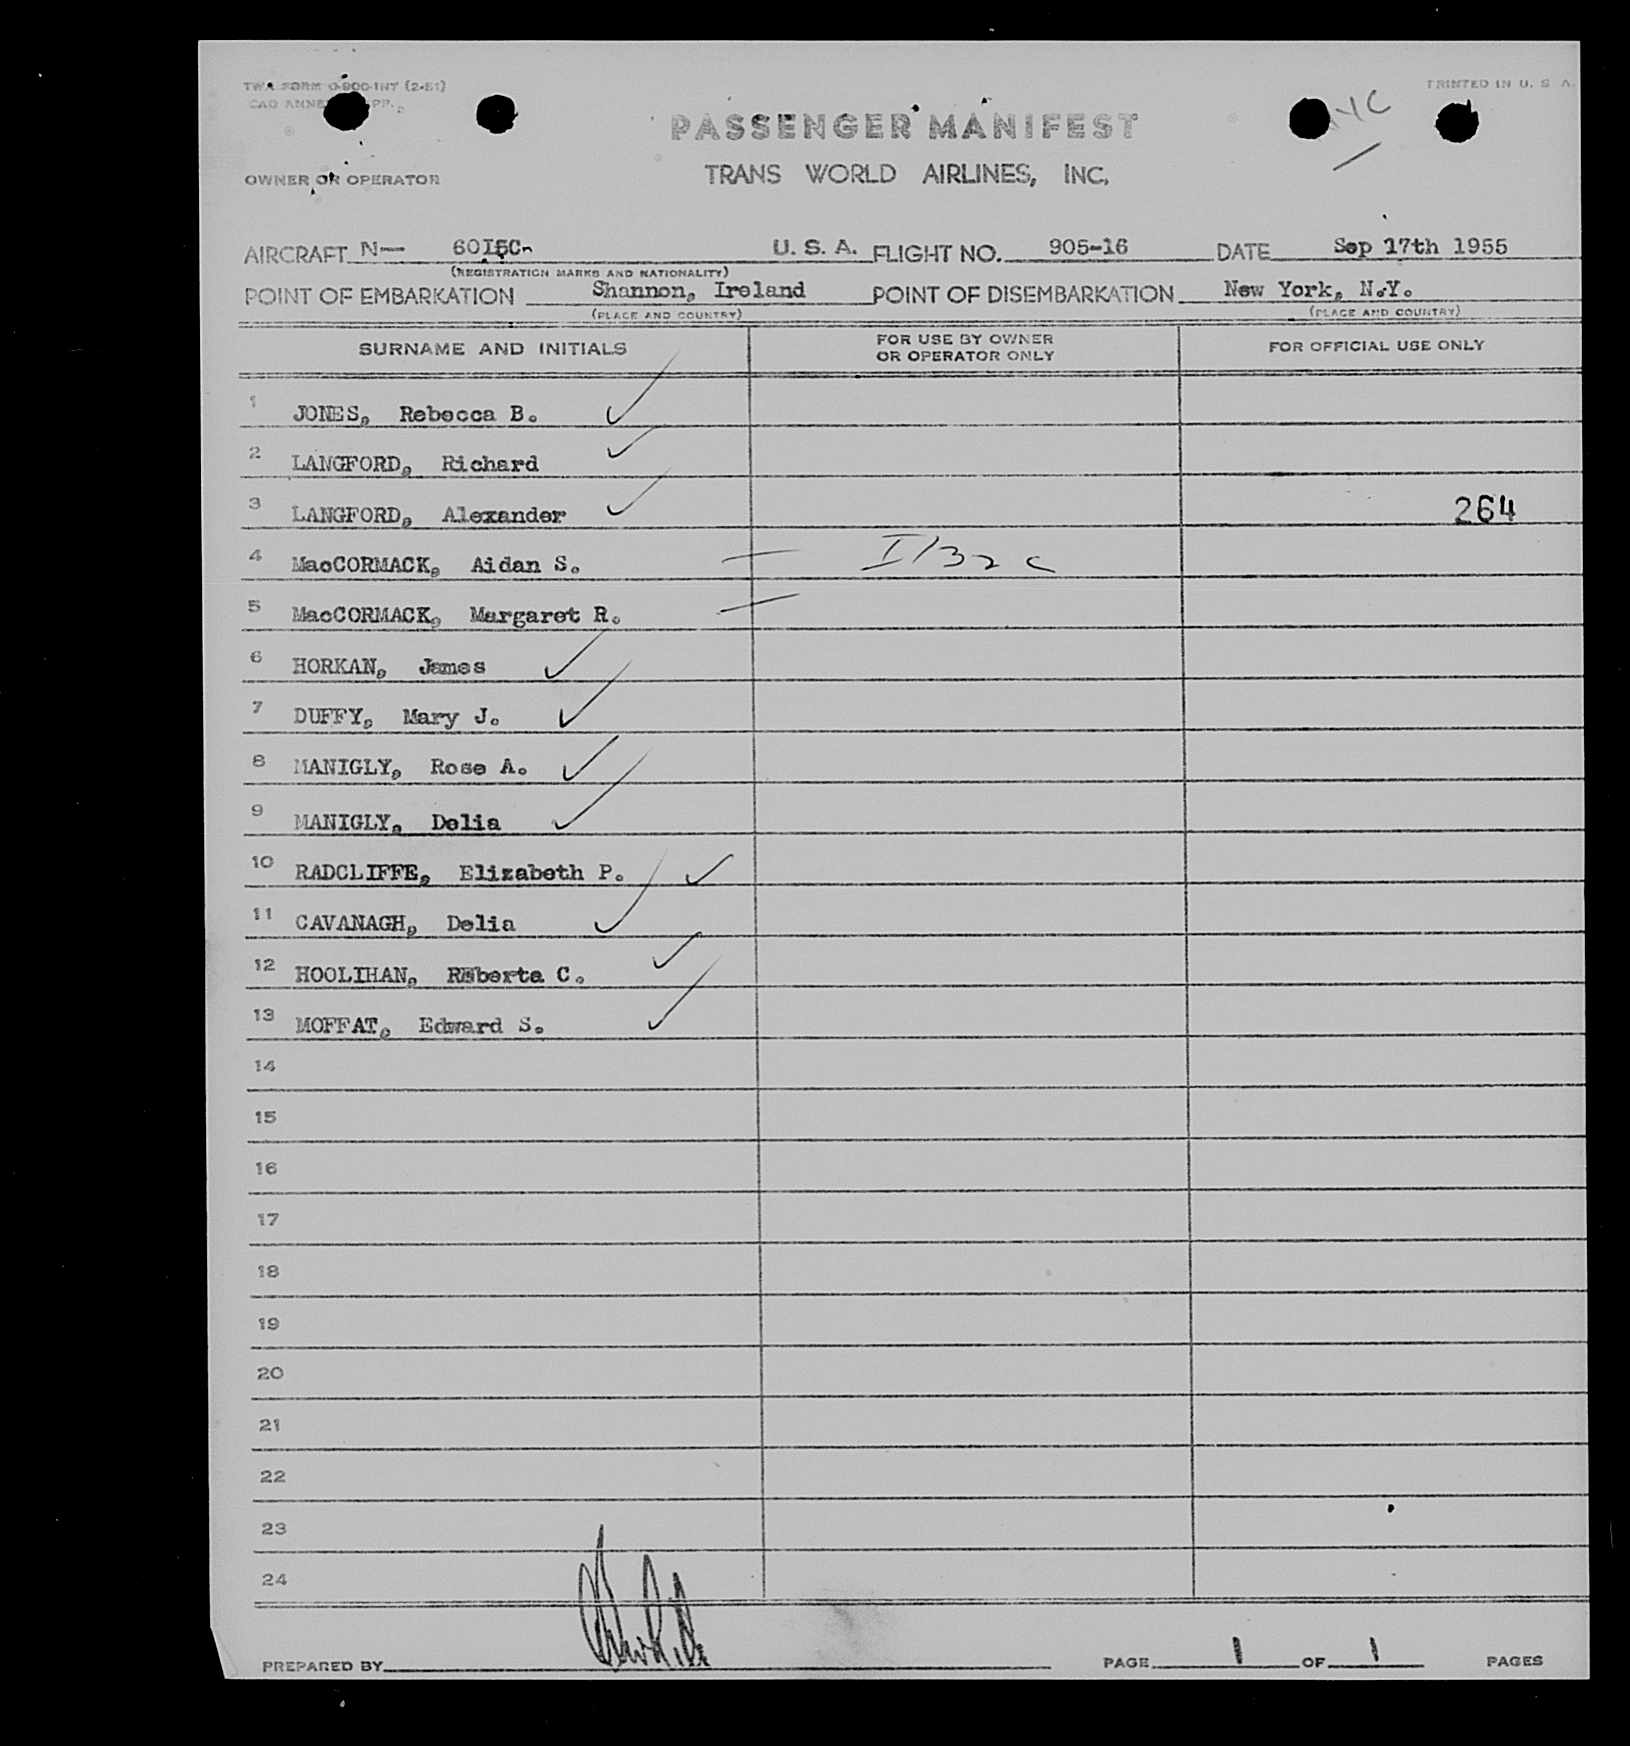 TWA FORM O-900-INT (2-51)
PRINTED IN U. S. A.
CAO ANNEX APP.
PASSENGER MANIFEST
TRANS WORLD AIRLINES, INC.
OWNER OR OPERATOR
AIRCRAFT N— U. S. A. FLIGHT NO. 905-16 DATE Sep 17th 1955
(REGISTRATION MARKS AND NATIONALITY)
POINT OF EMBARKATION Shannon, Ireland POINT OF DISEMBARKATION New York, N.Y.
(PLACE AND COUNTRY) (PLACE AND COUNTRY)
SURNAME AND INITIALS FOR USE BY OWNER OR OPERATOR ONLY FOR OFFICIAL USE ONLY
1 JONES, Rebecca B.
2 LANGFORD, Richard
3 LANGFORD, Alexander 264
4 MacCORMACK, Aidan S.
5 MacCORMACK, Margaret R.
6 HORKAN, James
7 DUFFY, Mary J.
8 MANIGLY, Rose A.
9 MANIGLY, Delia
10 RADCLIFFE, Elizabeth P.
11 CAVANAGH, Delia
12 HOOLIHAN, Roberta C.
13 MOFFAT, Edward S.
14
15
16
17
18
19
20
21
22
23
24
PREPARED BY PAGE 1 OF 1 PAGES